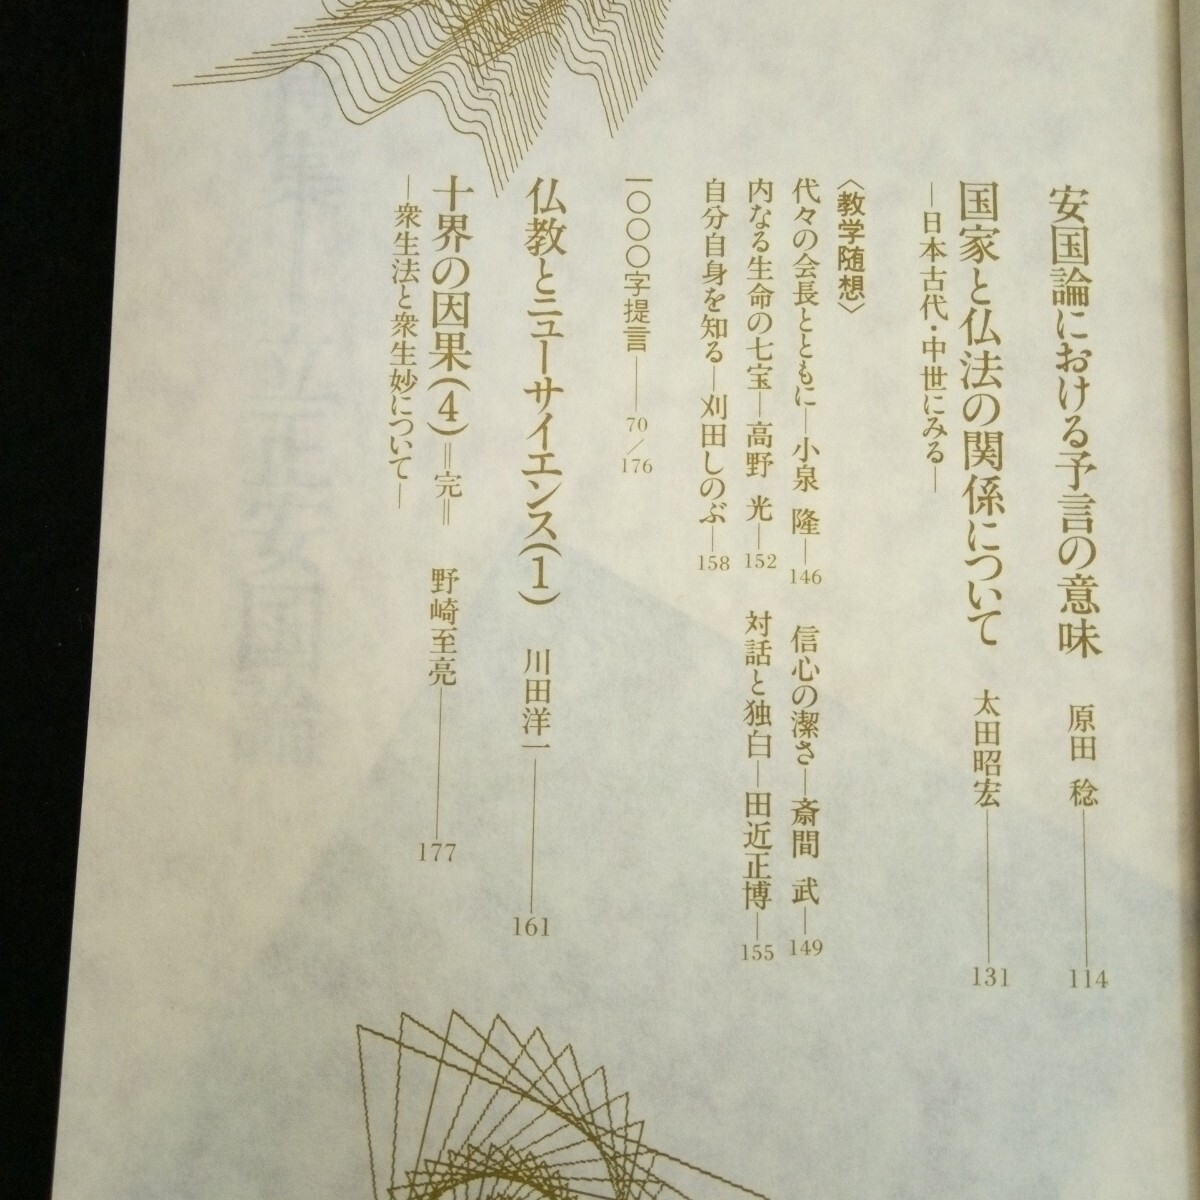 安国論における予言の意味 原田 稔 114
国家と仏法の関係について 太田昭宏 131
―日本古代・中世にみる―
〈教学随想〉
代々の会長とともに―小泉 隆―146 信心の潔さ―斎間 武―149
内なる生命の七宝―高野 光―152 対話と独白―田近正博―155
自分自身を知る―刈田しのぶ―158
一〇〇〇字提言――70/176
仏教とニューサイエンス(1) 川田洋一――161
十界の因果(4)=完= 野崎至亮――177
―衆生法と衆生妙について―